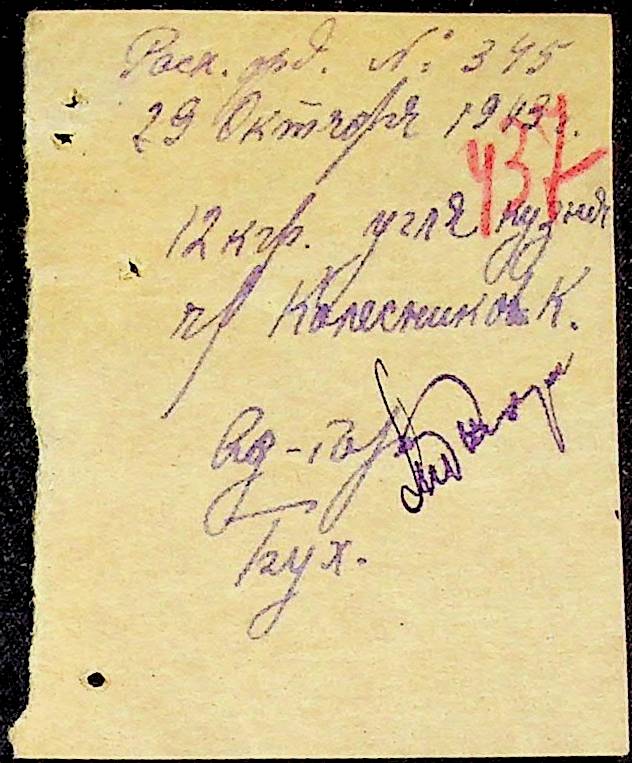 Расх. орд. № 345
29 Октября 1943г.
437
12 кгр. угля кузня
ч/ Колесников К.
Бух.